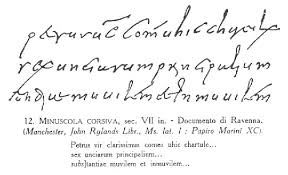 petrus uc comes uhic chartule
sex unciarum principalium
muuilem et inmuuilem
12. MINUSCOLA CORSIVA, sec. VII in. - Documento di Ravenna.
(Manchester, John Rylands Libr., Ms. lat. 1 : Papiro Marini XC).
Petrus vir clarissimus comes uhic chartule...
sex unciarum principalium...
subs]tantiae muvilem et inmuvilem...